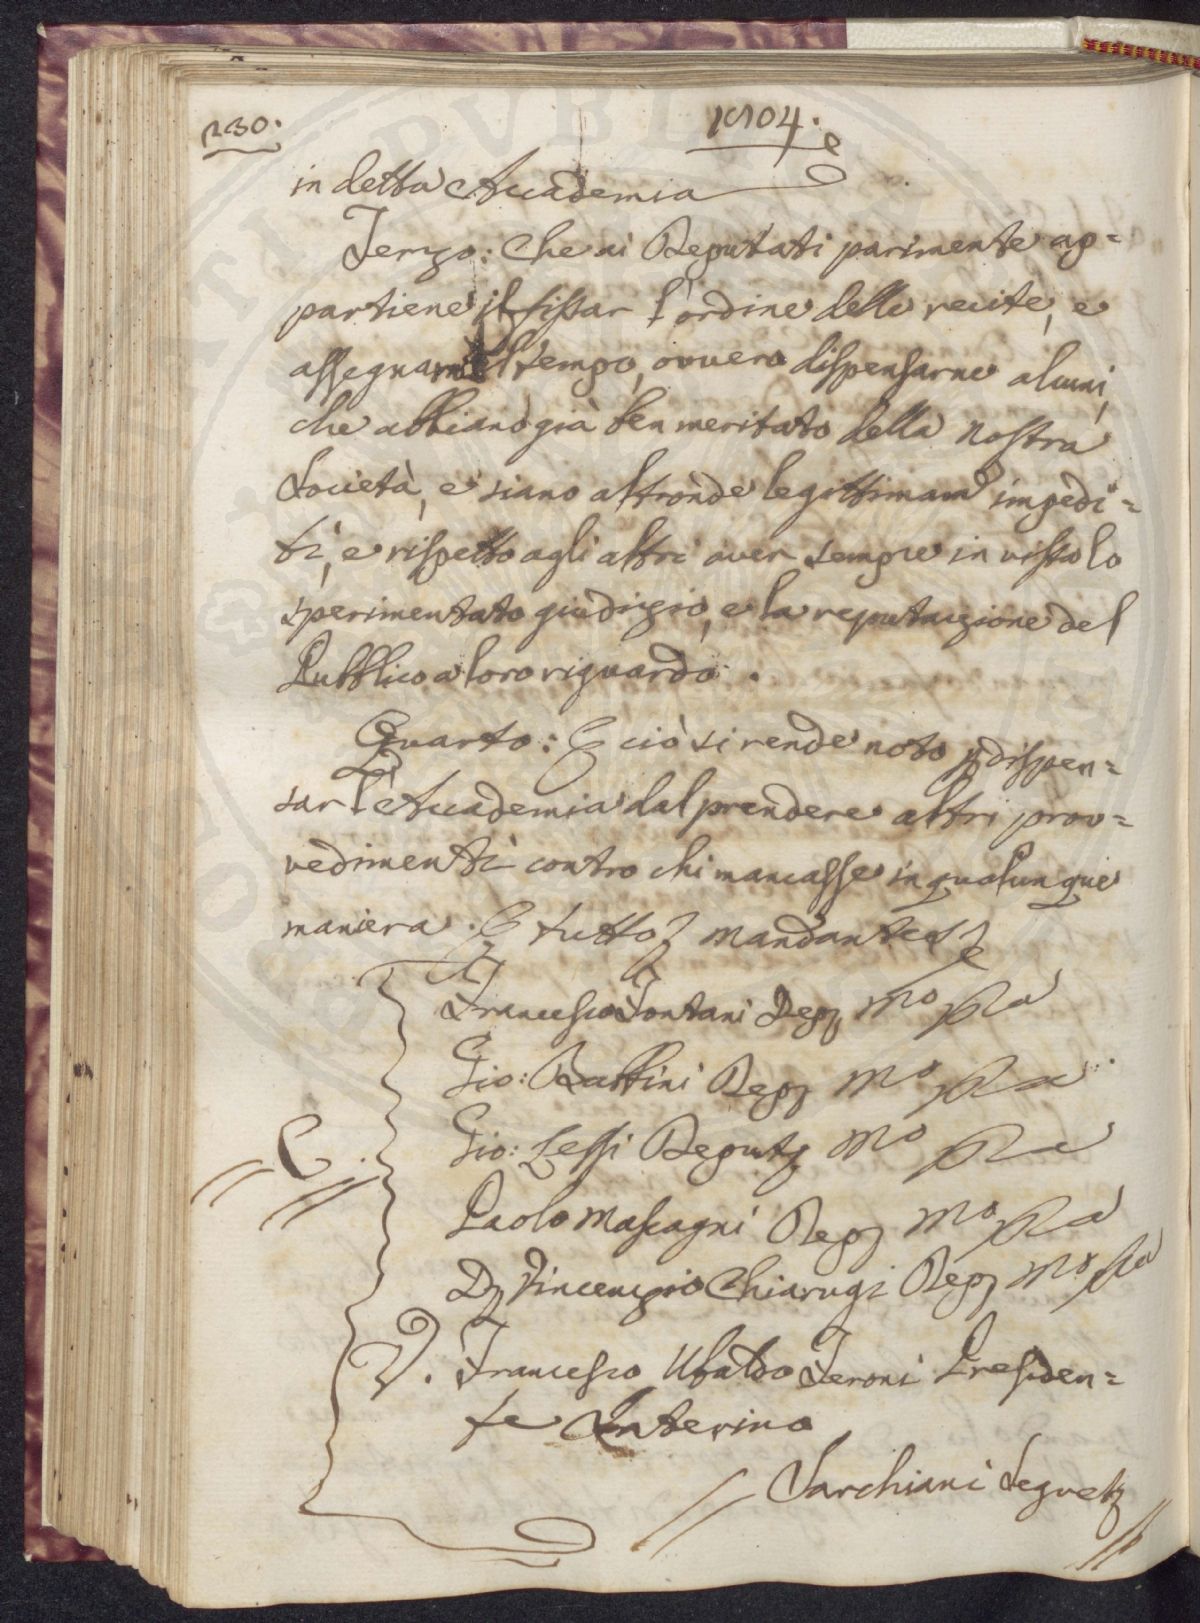 230.
1804.
in detta Accademia
Terzo: Che ai Deputati parimente ap=
partiene il fissar l'ordine delle recite, e
assegnarne il tempo, ovvero dispensarne alcuni,
che abbiano già ben meritato della nostra
Società, e siano altronde legittimam.e impedi=
ti, e rispetto agli altri aver sempre in vista lo
sperimentato giudizio, e la reputazione del
Pubblico a loro riguardo.
Quarto: E ciò si rende noto p dispen=
sar l'Accademia dal prendere altri prov=
vedimenti contro chi mancasse in qualunque
maniera. E tutto mandantes
Francesco Fontani Dep. mo pa
Gio: Babbini Dep. mo pa
Gio: Lessi Deput. mo pa
Paolo Mascagni Dep. mo pa
D. Vincenzio Chiarugi Dep. mo pa
V. Francesco Ubaldo Feroni Presiden=
te Interino
Sarchiani Segret.